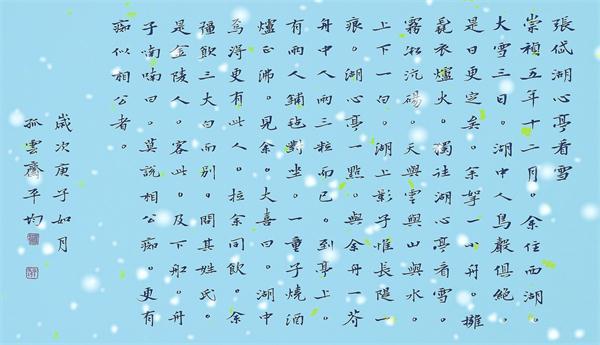 張岱湖心亭看雪
崇禎五年十二月。余住西湖。
大雪三日。湖中人鳥聲俱絕。
是日更定矣。余拏一小舟。擁
毳衣爐火。獨往湖心亭看雪。
霧淞沆碭。天與雲與山與水。
上下一白。湖上影子惟長隄一
痕。湖心亭一點。與余舟一芥
舟中人兩三粒而已。到亭上。
有兩人鋪氈對坐。一童子燒酒
爐正沸。見余。大喜曰。湖中
焉得更有此人。拉余同飲。余
彊飲三大白而別。問其姓氏。
是金陵人。客此。及下船。舟
子喃喃曰。莫說相公痴。更有
痴似相公者。
歲次庚子如月
孤雲齋平均